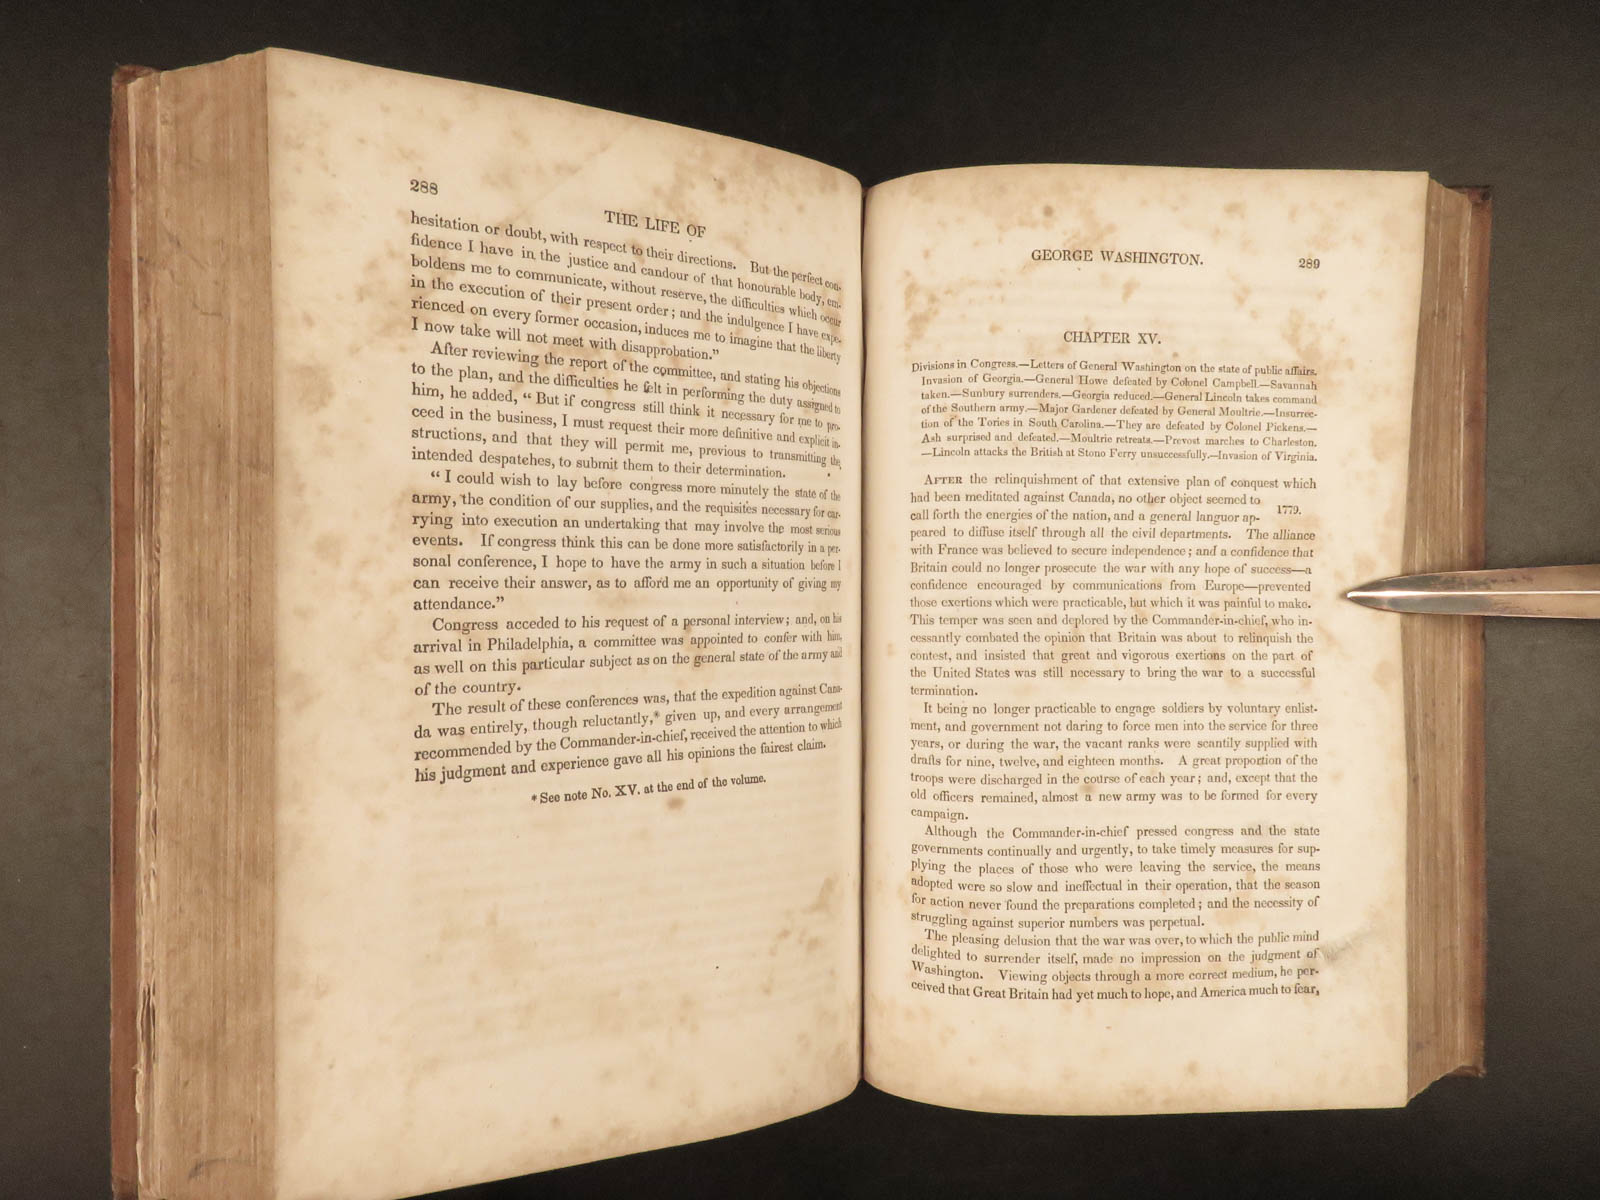 288
THE LIFE OF
hesitation or doubt, with respect to their directions. But the perfect con-
fidence I have in the justice and candour of that honourable body, em-
boldens me to communicate, without reserve, the difficulties which occur
in the execution of their present order; and the indulgence I have expe-
rienced on every former occasion, induces me to imagine that the liberty
I now take will not meet with disapprobation."
After reviewing the report of the committee, and stating his objections
to the plan, and the difficulties he felt in performing the duty assigned to
him, he added, "But if congress still think it necessary for me to pro-
ceed in the business, I must request their more definitive and explicit in-
structions, and that they will permit me, previous to transmitting the
intended despatches, to submit them to their determination.
"I could wish to lay before congress more minutely the state of the
army, the condition of our supplies, and the requisites necessary for car-
rying into execution an undertaking that may involve the most serious
events. If congress think this can be done more satisfactorily in a per-
sonal conference, I hope to have the army in such a situation before I
can receive their answer, as to afford me an opportunity of giving my
attendance."
Congress acceded to his request of a personal interview; and, on his
arrival in Philadelphia, a committee was appointed to confer with him,
as well on this particular subject as on the general state of the army and
of the country.
The result of these conferences was, that the expedition against Cana-
da was entirely, though reluctantly,* given up, and every arrangement
recommended by the Commander-in-chief, received the attention to which
his judgment and experience gave all his opinions the fairest claim.
* See note No. XV. at the end of the volume.
GEORGE WASHINGTON. 289
CHAPTER XV.
Divisions in Congress.—Letters of General Washington on the state of public affairs.
Invasion of Georgia.—General Howe defeated by Colonel Campbell.—Savannah
taken.—Sunbury surrenders.—Georgia reduced.—General Lincoln takes command
of the Southern army.—Major Gardener defeated by General Moultrie.—Insurrec-
tion of the Tories in South Carolina.—They are defeated by Colonel Pickens.—
Ash surprised and defeated.—Moultrie retreats.—Prevost marches to Charleston.
—Lincoln attacks the British at Stono Ferry unsuccessfully.—Invasion of Virginia.
AFTER the relinquishment of that extensive plan of conquest which
had been meditated against Canada, no other object seemed to
1779.
call forth the energies of the nation, and a general languor ap-
peared to diffuse itself through all the civil departments. The alliance
with France was believed to secure independence; and a confidence that
Britain could no longer prosecute the war with any hope of success—a
confidence encouraged by communications from Europe—prevented
those exertions which were practicable, but which it was painful to make.
This temper was seen and deplored by the Commander-in-chief, who in-
cessantly combated the opinion that Britain was about to relinquish the
contest, and insisted that great and vigorous exertions on the part of
the United States was still necessary to bring the war to a successful
termination.
It being no longer practicable to engage soldiers by voluntary enlist-
ment, and government not daring to force men into the service for three
years, or during the war, the vacant ranks were scantily supplied with
drafts for nine, twelve, and eighteen months. A great proportion of the
troops were discharged in the course of each year; and, except that the
old officers remained, almost a new army was to be formed for every
campaign.
Although the Commander-in-chief pressed congress and the state
governments continually and urgently, to take timely measures for sup-
plying the places of those who were leaving the service, the means
adopted were so slow and ineffectual in their operation, that the season
for action never found the preparations completed; and the necessity of
struggling against superior numbers was perpetual.
The pleasing delusion that the war was over, to which the public mind
delighted to surrender itself, made no impression on the judgment of
Washington. Viewing objects through a more correct medium, he per-
ceived that Great Britain had yet much to hope, and America much to fear,